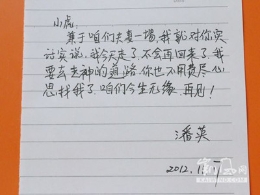 小虎
鉴于咱们夫妻一场,我就对你实
话实说,我今天走了,不会再回来了,我
要去走神的道路,你也不用费尽心
思找我了,咱们今生无缘,再见!
潘英
2012.12.